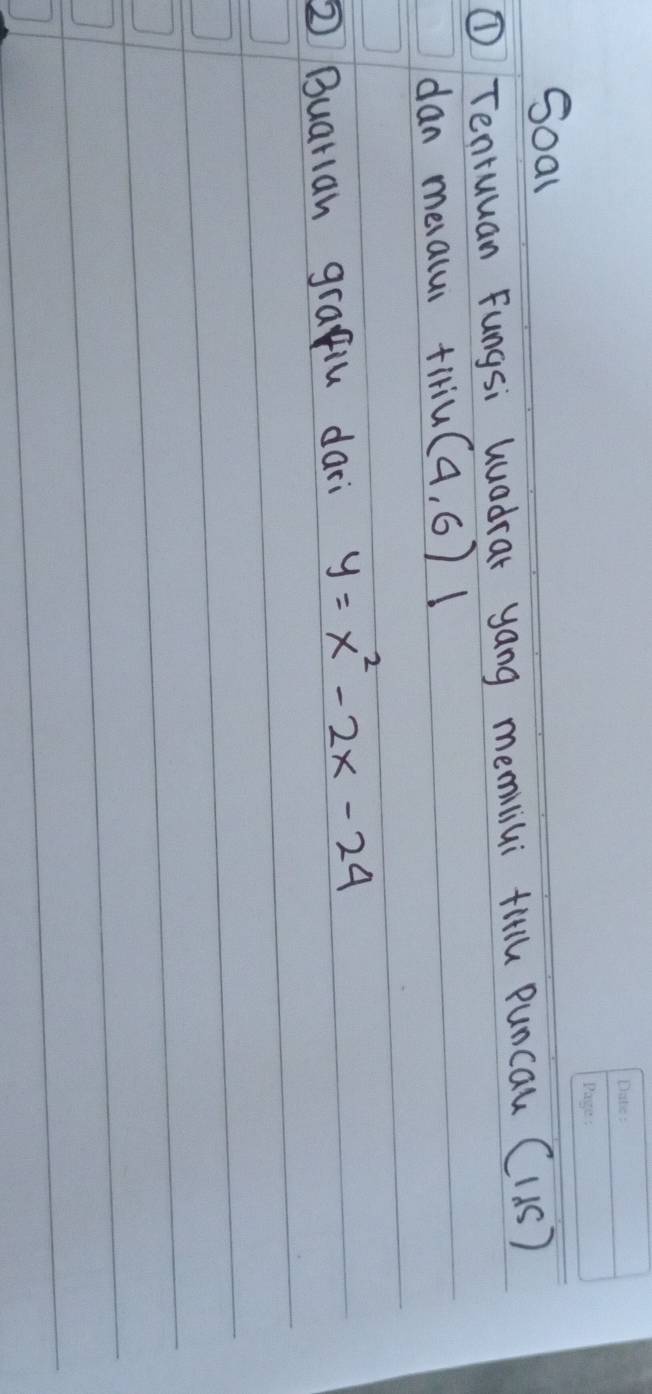 Date:
Page:
Soal
① Tentukan Fungsi kuadrat yang memiliki titik Puncak (1,5)
dan melalui titik (4,6) !
② Buatlah grafik dari y = x² - 2x - 24